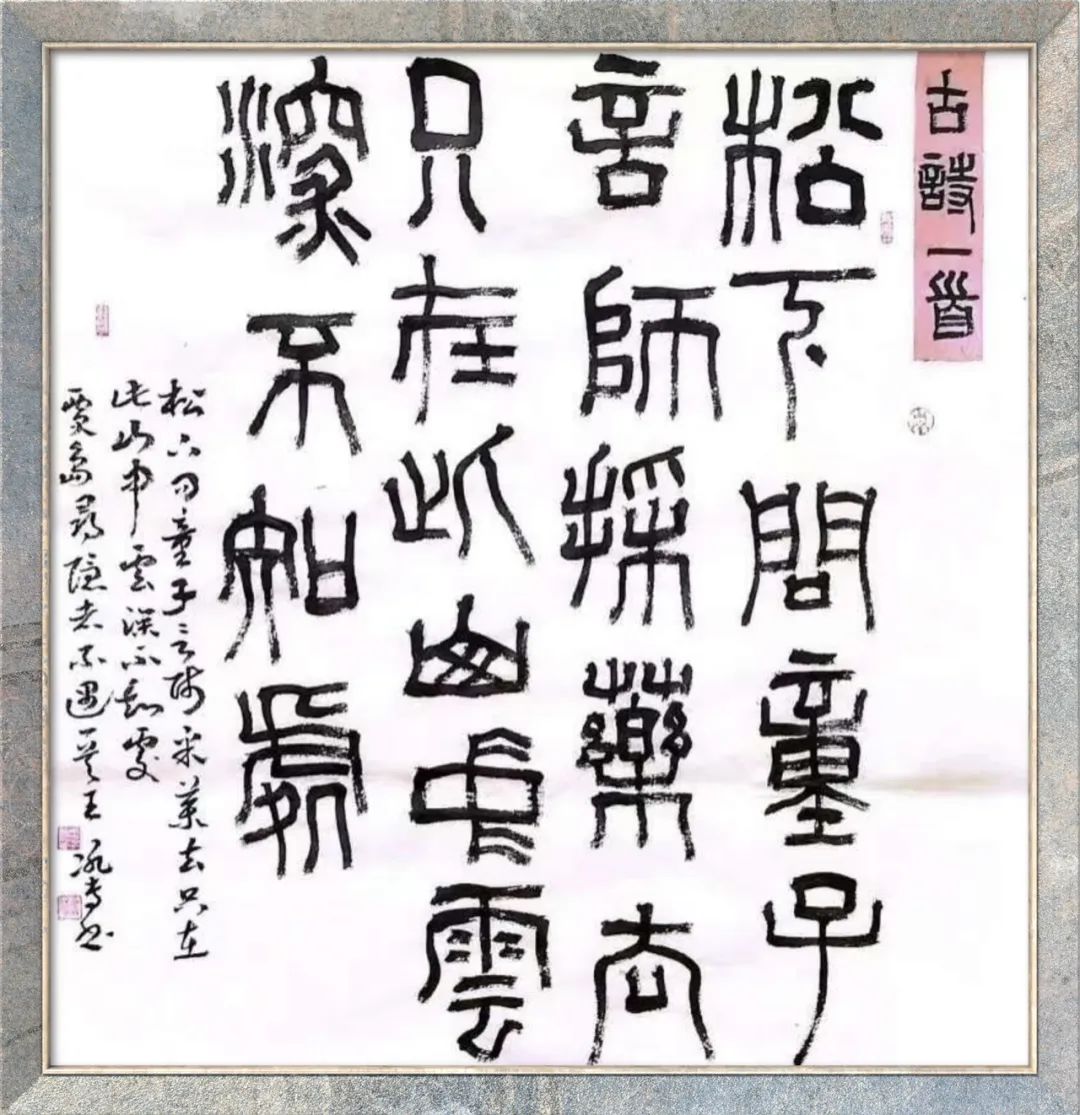 古詩一首
松下問童子
言師採藥去
只在此山中雲
深不知處
松下问童子言师采葉去只在
此山中雲深不知處
賈島尋隐者不遇 王 书